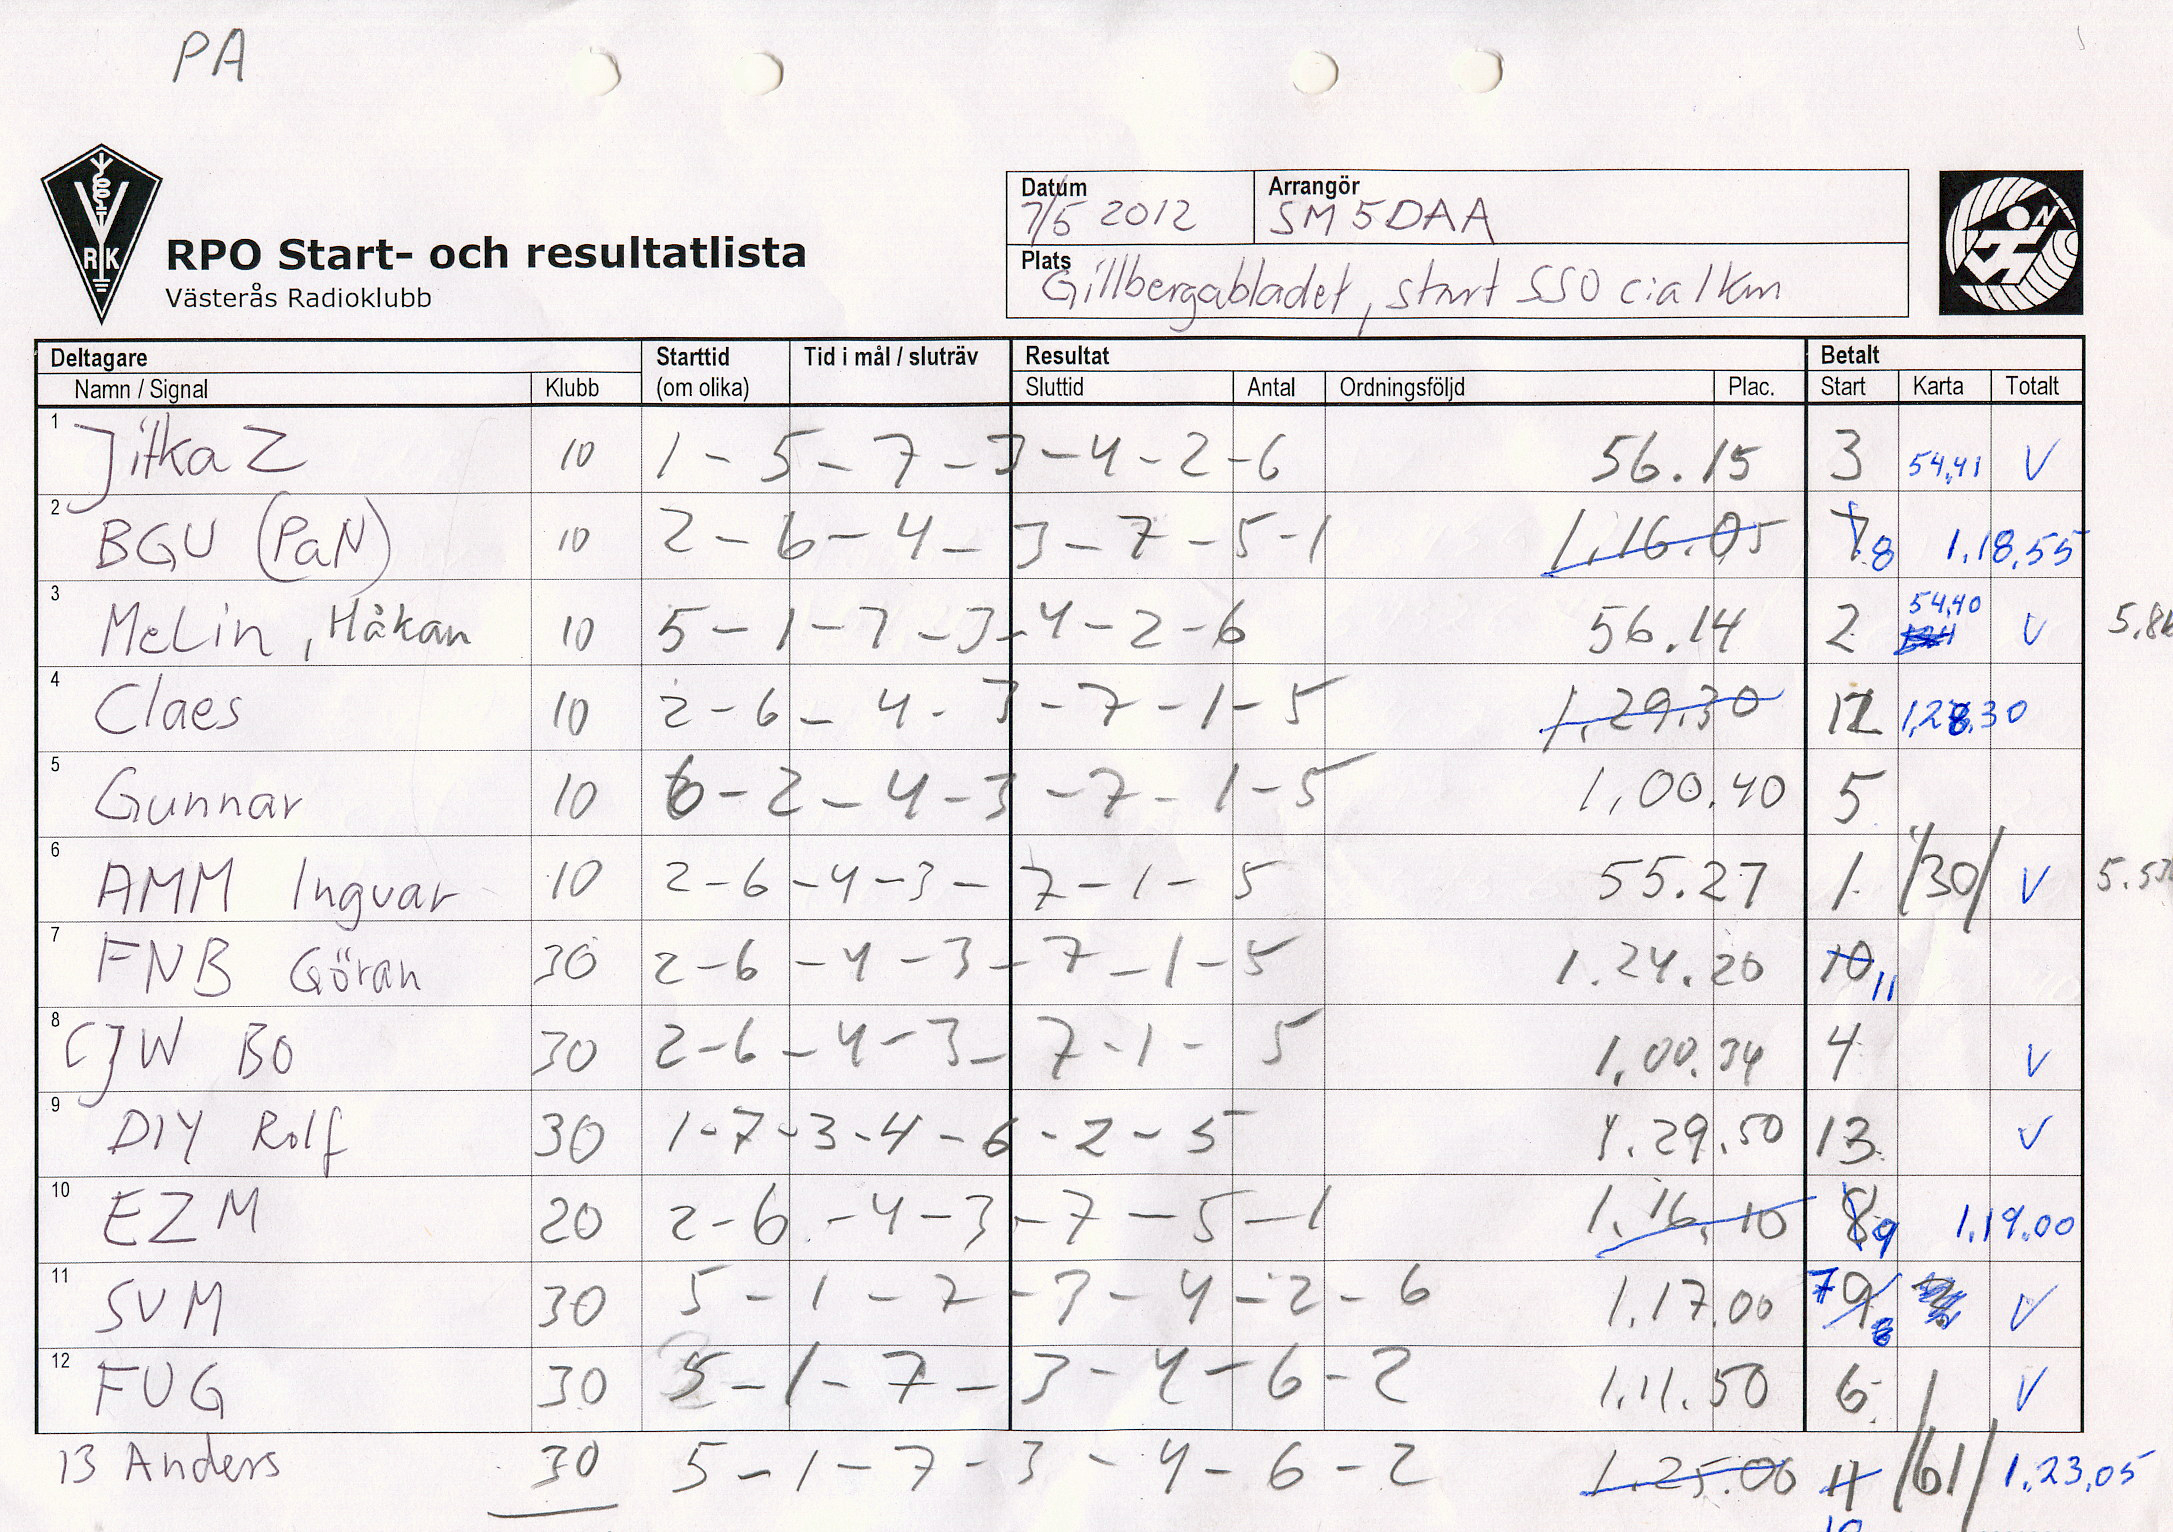 PA
V
RK
RPO Start- och resultatlista
Västerås Radioklubb
Datum
7/5 2012
Arrangör
SM5DAA
Plats
Gillbergabladet, start SSO cia 1km
Deltagare Starttid Tid i mål / sluträv Resultat Betalt
Namn / Signal Klubb (om olika) Sluttid Antal Ordningsföljd Plac. Start Karta Totalt
1 Jitka Z 10 1 - 5 - 7 - 3 - 4 - 2 - 6 56.15 3 54,41 V
2 BGU (PaN) 10 2 - 6 - 4 - 3 - 7 - 5 - 1 1.16.05 7 8 1.18.55
3 MeLin, Håkan 10 5 - 1 - 7 - 3 - 4 - 2 - 6 56.14 2 54,40 V
4 Claes 10 2 - 6 - 4 - 3 - 7 - 1 - 5 1.29.30 12 1,28.30
5 Gunnar 10 6 - 2 - 4 - 3 - 7 - 1 - 5 1,00.40 5
6 AMM Ingvar 10 2 - 6 - 4 - 3 - 7 - 1 - 5 55.27 1. /30/ V
7 FNB Göran 30 2 - 6 - 4 - 3 - 7 - 1 - 5 1.24.20 10 11
8 CJW BO 30 2 - 6 - 4 - 3 - 7 - 1 - 5 1.00.34 4 V
9 DIY Rolf 30 1 - 7 - 3 - 4 - 6 - 2 - 5 1.29.50 13 V
10 EZM 20 2 - 6 - 4 - 3 - 7 - 5 - 1 1.16.10 8 9 1.19.00
11 SVM 30 5 - 1 - 7 - 3 - 4 - 2 - 6 1.17.00 7 9 V
12 FUG 30 5 - 1 - 7 - 3 - 4 - 6 - 2 1.11.50 6 V
13 Anders 30 5 - 1 - 7 - 3 - 4 - 6 - 2 1.25.00 11 /61/ 1.23.05
10